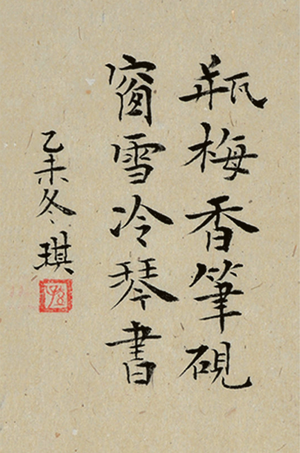 瓶梅香筆硯
窗雪冷琴書
乙未冬琪